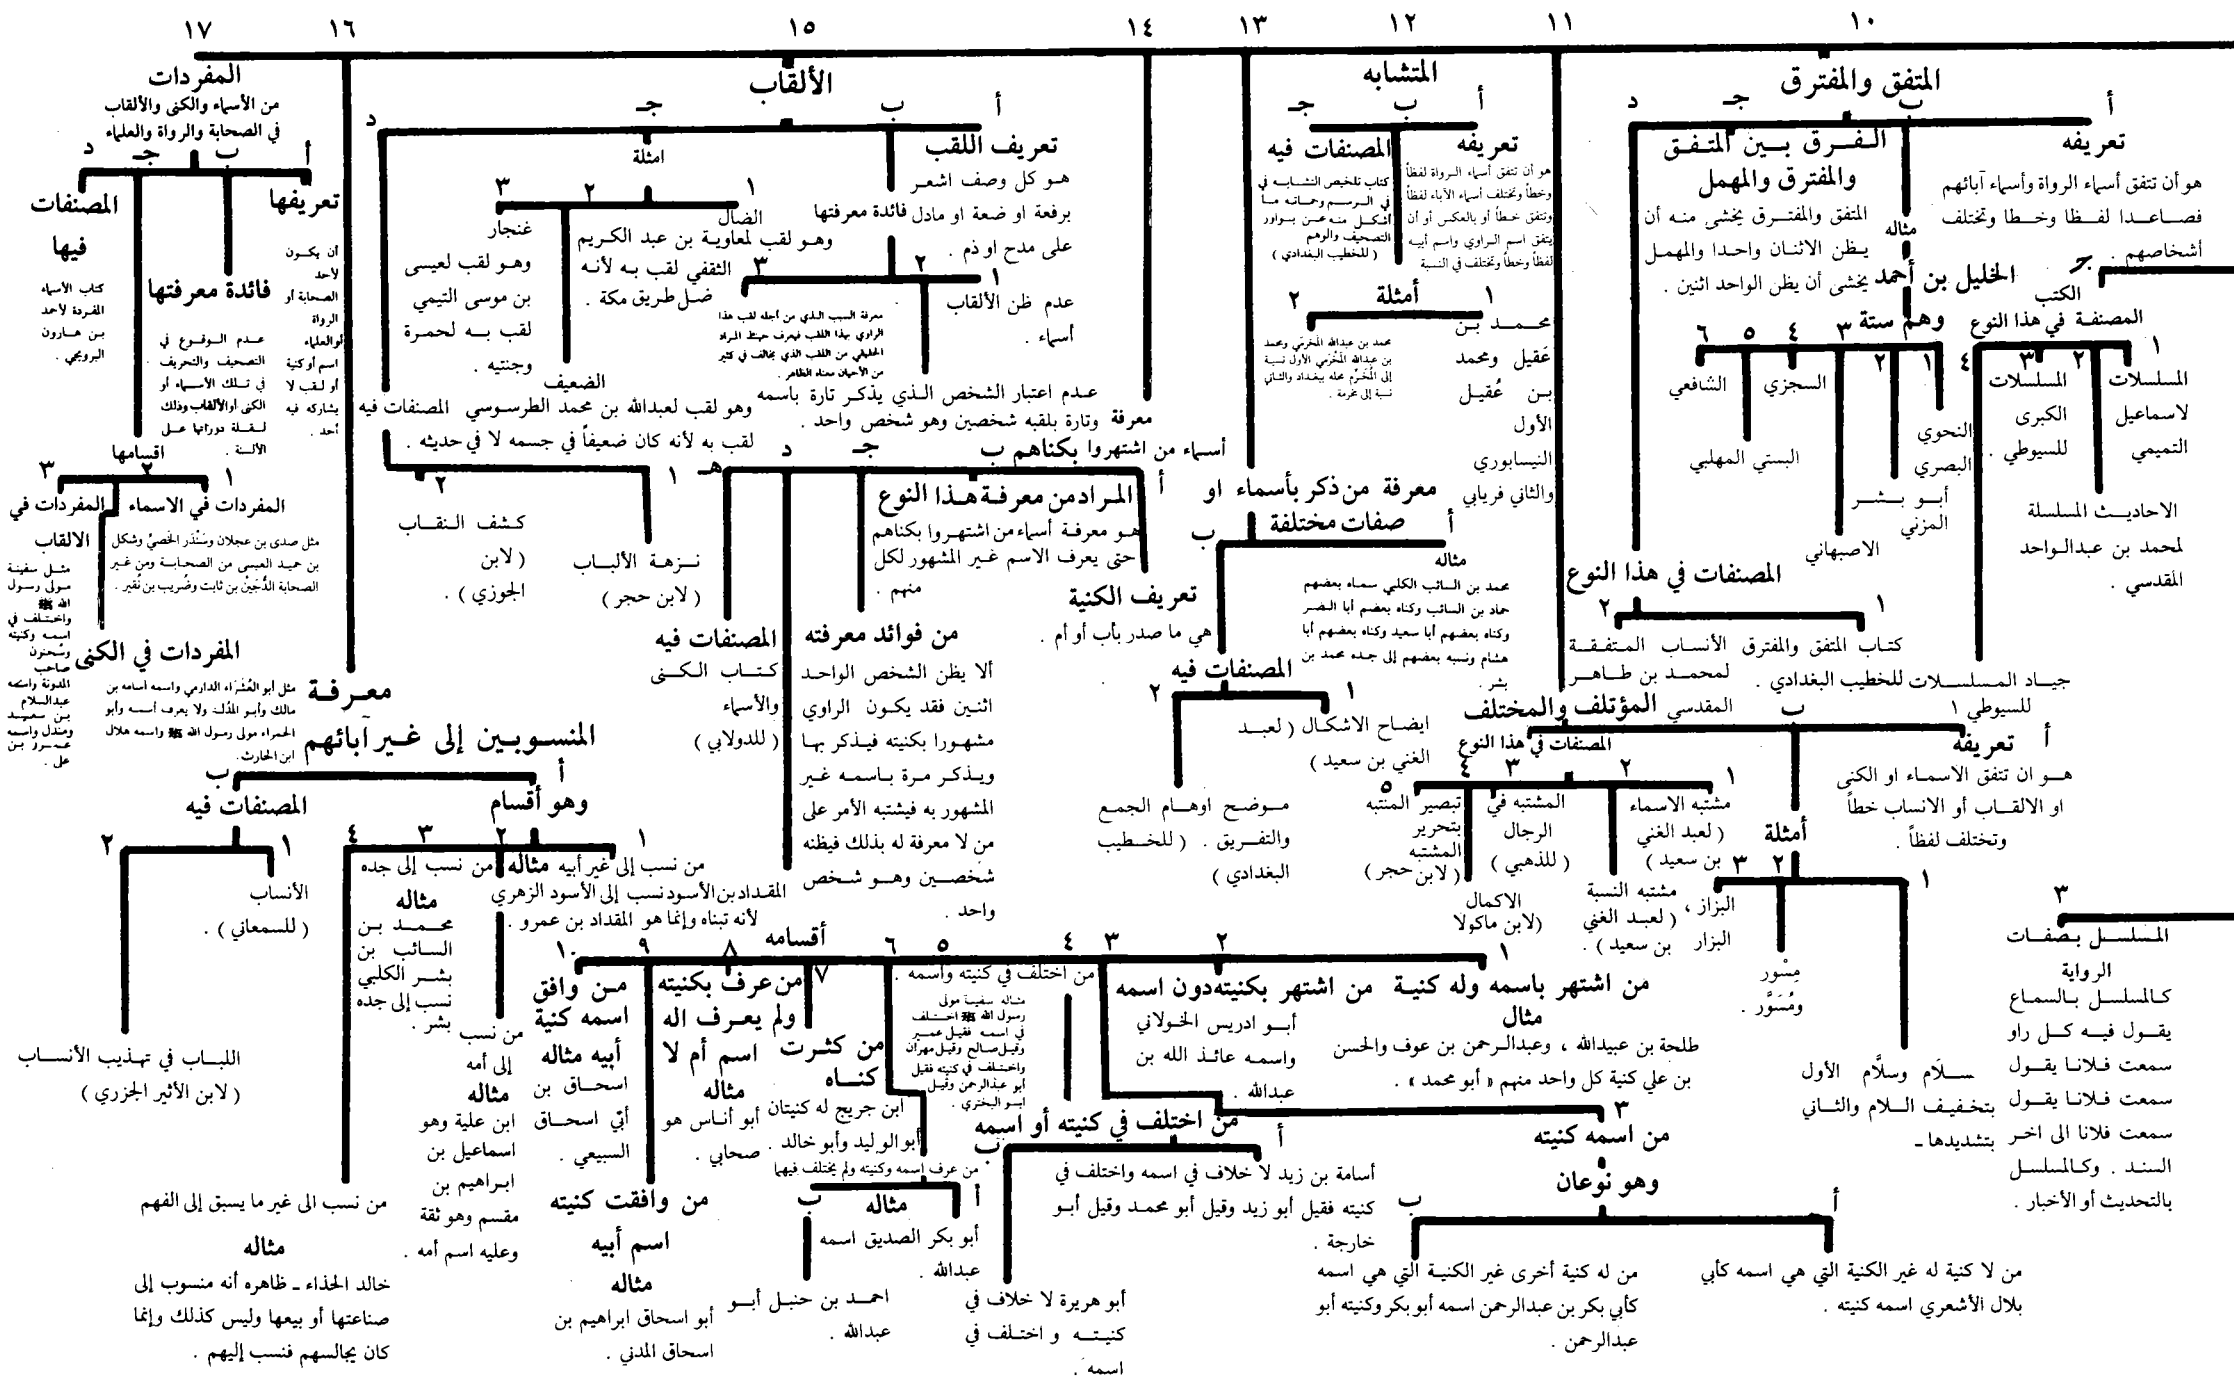 ١٠
المتفق والمفترق
أ
ب
جـ
د
تعريفه
هو أن تتفق أسماء الرواة وأسماء آبائهم
فصاعدا لفظا وخطا وتختلف
أشخاصهم .
مثاله
الخليل بن أحمد
وهم ستة
١
٢
٣
٤
٥
٦
النحوي
البصري
أبو بشر
المزني
الاصبهاني
السجزي
البستي المهلبي
الشافعي
الفرق بين المتفق
والمفترق والمهمل
المتفق والمفترق يخشى منه أن
يظن الاثنان واحدا والمهمل
يخشى أن يظن الواحد اثنين .
المصنفات في هذا النوع
١
٢
كتاب المتفق والمفترق
للخطيب البغدادي .
الأنساب المتفقة
لمحمد بن طاهر
المقدسي
جـ
الكتب
المصنفة في هذا النوع
١
٢
٣
٤
المسلسلات
لاسماعيل
التميمي
الاحاديث المسلسلة
لمحمد بن عبدالواحد
المقدسي .
المسلسلات
الكبرى
للسيوطي .
جياد المسلسلات
للسيوطي ١
٣
المسلسل بصفات
الرواية
كالمسلسل بالسماع
يقول فيه كل راو
سمعت فلانا يقول
سمعت فلانا يقول
سمعت فلانا الى اخر
السند . وكالمسلسل
بالتحديث أو الأخبار .
١١
المؤتلف والمختلف
أ
ب
تعريفه
هو ان تتفق الاسماء او الكنى
او الالقاب أو الانساب خطاً
وتختلف لفظاً .
أمثلة
١
٢
٣
سلَام وسلَّام الأول
بتخفيف اللام والثاني
بتشديدها ـ
مِسْور
ومُسَوَّر .
البزاز ،
البزار
المصنفات في هذا النوع
١
٢
٣
٤
٥
مشتبه الاسماء
( لعبد الغني
بن سعيد )
مشتبه النسبة
( لعبد الغني
بن سعيد ) .
المشتبه في
الرجال
( للذهبي )
الاكمال
(لابن ماكولا
تبصير المنتبه
بتحرير
المشتبه
( لابن حجر )
١٢
المتشابه
أ
ب
جـ
تعريفه
هو أن تتفق أسماء الرواة لفظاً
وخطاً وتختلف أسماء الآباء لفظاً
وتتفق خطاً أو بالعكس أو أن
يتفق اسم الراوي واسم أبيه
لفظاً وخطاً وتختلف في النسبة
المصنفات فيه
كتاب تلخيص المتشابه في
الرسم وحماية ما
أشكل منه عن بوادر
التصحيف والوهم
( للخطيب البغدادي )
أمثلة
١
٢
محمد بن
عَقيل ومحمد
بن عُقيل
الأول
النيسابوري
والثاني فريابي
محمد بن عبدالله المخرمي ومحمد
بن عبدالله المَخْرَمي الأول نسبة
إلى المُخَرِّم محله ببغداد والثاني
نسبة إلى مخرمة .
١٣
معرفة من ذكر بأسماء او
صفات مختلفة
أ
ب
مثاله
محمد بن السائب الكلبي سماه بعضهم
حماد بن السائب وكناه بعضهم أبا النضر
وكناه بعضهم أبا سعيد وكناه بعضهم أبا
هشام ونسبه بعضهم إلى جده محمد بن
بشر .
المصنفات فيه
١
٢
ايضاح الاشكال ( لعبد
الغني بن سعيد )
موضح اوهام الجمع
والتفريق . ( للخطيب
البغدادي )
١٤
معرفة
أسماء من اشتهروا بكناهم
أ
ب
جـ
د
هـ
تعريف الكنية
هي ما صدر بأب أو أم .
المراد من معرفة هذا النوع
هو معرفة أسماء من اشتهروا بكناهم
حتى يعرف الاسم غير المشهور لكل
منهم .
من فوائد معرفته
ألا يظن الشخص الواحد
اثنين فقد يكون الراوي
مشهورا بكنيته فيذكر بها
ويذكر مرة باسمه غير
المشهور به فيشتبه الأمر على
من لا معرفة له بذلك فيظنه
شخصين وهو شخص
واحد .
المصنفات فيه
كتاب الكنى
والأسماء
( للدولابي )
أقسامه
١
٢
٣
٤
٥
٦
٧
٨
٩
١٠
من اشتهر باسمه وله كنية
مثال
طلحة بن عبيدالله ، وعبدالرحمن بن عوف والحسن
بن علي كنية كل واحد منهم « أبو محمد » .
من اشتهر بكنيته دون اسمه
أبو ادريس الخولاني
واسمه عائذ الله بن
عبدالله .
٣
من اسمه كنيته
وهو نوعان
أ
ب
من لا كنية له غير الكنية التي هي اسمه كأبي
بلال الأشعري اسمه كنيته .
من له كنية أخرى غير الكنية التي هي اسمه
كأبي بكر بن عبدالرحمن اسمه أبو بكر وكنيته أبو
عبدالرحمن .
من اختلف في كنيته واسمه .
مثاله سفينة مولى
رسول الله ﷺ اختلف
في اسمه فقيل عمير
وقيل صالح وقيل مهران
واختلف في كنيته فقيل
أبو عبدالرحمن وقيل
ابو البختري .
من اختلف في كنيته أو اسمه
أ
ب
أسامة بن زيد لا خلاف في اسمه واختلف في
كنيته فقيل أبو زيد وقيل أبو محمد وقيل أبو
خارجة .
أبو هريرة لا خلاف في
كنيته و اختلف في
اسمه .
من عرف اسمه وكنيته ولم يختلف فيهما
أ
ب
مثاله
أبو بكر الصديق اسمه
عبدالله .
احمد بن حنبل أبو
عبدالله .
من كثرت
كناه
ابن جريج له كنيتان
أبو الوليد وأبو خالد .
من عرف بكنيته
ولم يعرف اله
اسم أم لا
مثاله
أبو أناس هو
صحابي .
من وافقت كنيته
اسم أبيه
مثاله
أبو اسحاق ابراهيم بن
اسحاق المدني .
من وافق
اسمه كنية
أبيه مثاله
اسحاق بن
أبي اسحاق
السبيعي .
١٥
الألقاب
أ
ب
جـ
د
تعريف اللقب
هو كل وصف اشعر
برفعة او ضعة او مادل
على مدح او ذم .
فائدة معرفتها
١
٢
٣
عدم ظن الألقاب
أسماء .
عدم اعتبار الشخص الذي يذكر تارة باسمه
وتارة بلقبه شخصين وهو شخص واحد .
معرفة السبب الذي من أجله لقب هذا
الراوي بهذا اللقب فيعرف حينئذ المراد
الحقيقي من اللقب الذي يخالف في كثير
من الأحيان معناه الظاهر .
امثلة
١
٢
٣
الضال
وهو لقب لمعاوية بن عبد الكريم
الثقفي لقب به لأنه
ضل طريق مكة .
الضعيف
وهو لقب لعبدالله بن محمد الطرسوسي
لقب به لأنه كان ضعيفاً في جسمه لا في حديثه .
غنجار
وهو لقب لعيسى
بن موسى التيمي
لقب به لحمرة
وجنتيه .
المصنفات فيه
١
٢
نزهة الألباب
( لابن حجر )
كشف النقاب
( لابن
الجوزي ) .
١٦
معرفة
المنسوبين إلى غير آبائهم
أ
ب
وهو أقسام
١
٢
٣
٤
من نسب إلى غير أبيه مثاله
المقداد بن الأسود نسب إلى الأسود الزهري
لأنه تبناه وإنما هو المقداد بن عمرو .
من نسب
إلى أمه
مثاله
ابن علية وهو
اسماعيل بن
ابراهيم بن
مقسم وهو ثقة
وعليه اسم أمه .
من نسب إلى جده
مثاله
محمد بن
السائب بن
بشر الكلبي
نسب إلى جده
بشر .
من نسب الى غير ما يسبق إلى الفهم
مثاله
خالد الحذاء ـ ظاهره أنه منسوب إلى
صناعتها أو بيعها وليس كذلك وإنما
كان يجالسهم فنسب إليهم .
المصنفات فيه
١
٢
الأنساب
( للسمعاني ) .
اللباب في تهذيب الأنساب
( لابن الأثير الجزري )
١٧
المفردات
من الأسماء والكنى والألقاب
في الصحابة والرواة والعلماء
أ
ب
جـ
د
تعريفها
أن يكون
لأحد
الصحابة أو
الرواة
أوالعلماء
اسم أو كنية
أو لقب لا
يشاركه فيه
أحد .
فائدة معرفتها
عدم الوقوع في
التصحيف والتحريف
في تلك الأسماء أو
الكنى أوالألقاب وذلك
لقلة دورانها على
الألسنة .
اقسامها
١
٢
٣
المفردات في الاسماء
مثل صدى بن عجلان وسَنْدَر الخَصيُّ وشكل
بن حميد العبسي من الصحابة ومن غير
الصحابة الدُّجَيْن بن ثابت وضُريب بن نُقير .
المفردات في الكنى
مثل أبو العُشَراء الدارمي واسمه أسامه بن
مالك وأبو المُدِلّة ولا يعرف أسمه وأبو
الحمراء مولى رسول الله ﷺ واسمه هلال
ابن الحارث.
المفردات في
الالقاب
مثل سفينة
مولى رسول
الله ﷺ
واختلف في
اسمه وكنيته
وسُحنون
صاحب
المدونة واسمه
عبدالسلام
بن سعيد
ومندل واسمه
عمرو بن
علي .
المصنفات
فيها
كتاب الأسماء
المفردة لأحمد
بن هارون
البرويجي .